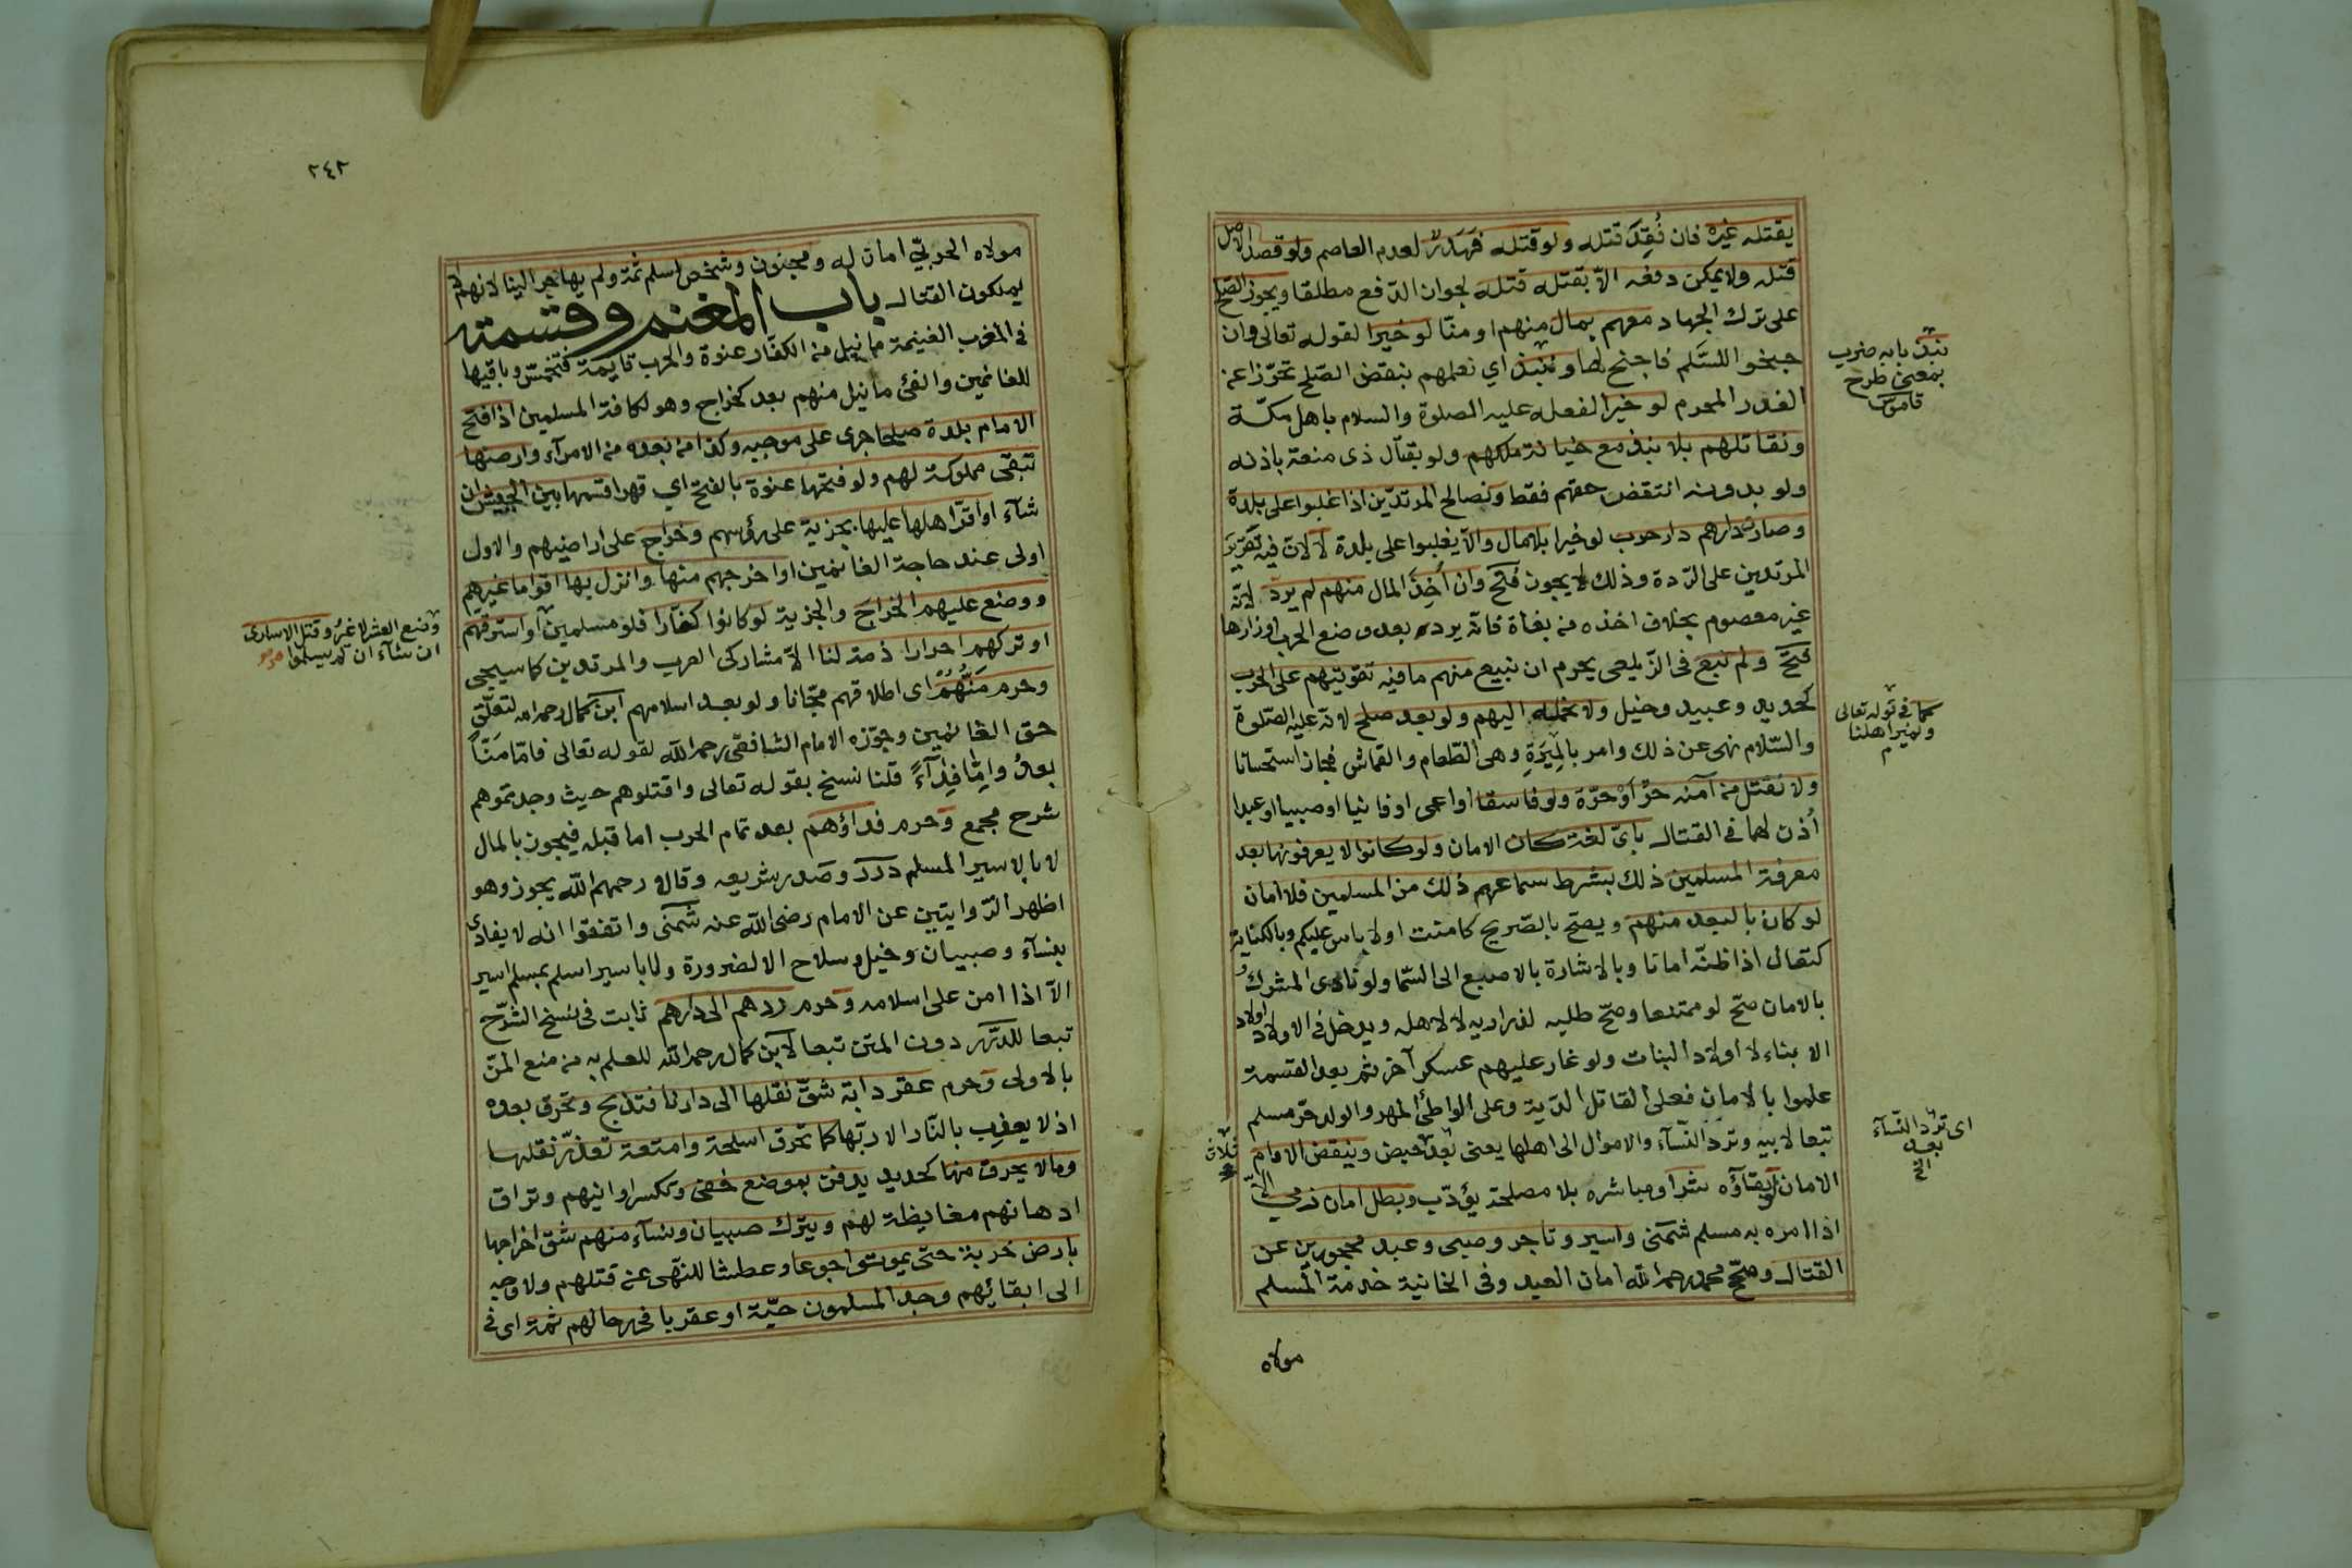 يقتله غيره فان فُقِدَ قتله ولو قتله فَهَدَرٌ لعدم العاصم ولو قصد الاصل
قتله ولا يمكن دفعه الّا بقتله قتله لجواز الدّفع مطلقا ويجوز الصّلح
على ترك الجهاد معهم بمال منهم او منّا لو خيرا لقوله تعالى وان
جنحوا للسَّلم فاجنح لها وننبذ اي نعلمهم بنقض الصّلح تحرّزا عن
الغدر المحرم لو خيرا لفعله عليه الصلوة والسلام باهل مكّة
ونقاتلهم بلا نبذ مع خيانة ملكهم ولو بقتال ذى منعة باذنه
ولو بدونه انتقض حقهم فقط ونصالح المرتدّين اذا غلبوا على بلدة
وصارت دارهم دار حرب لو خيرا بلا مال والّا يغلبوا على بلدة لا لانّ فيه تقرير
المرتدين على الرّدة وذلك لا يجوز فتح وان أُخِذَ المال منهم لم يردّ لانّه
غير معصوم بخلاف اخذه من بغاة فانّه يرد بعد وضع الحرب اوزارها
فتح ولم نبع فى الزّيلعى يحرم ان نبيع منهم ما فيه تقويتهم على الحرب
كحديد وعبيد وخيل ولا نحمله اليهم ولو بعد صلح لانّه عليه الصّلوة
والسّلام نهى عن ذلك وامر بالمِيَرَةِ وهى الطّعام والقماش فجاز استحسانا
ولا نقتل من آمنه حرّ او حرّة ولو فاسقا او اعمى او فانيا او صبيا او عبدا
أُذن لهما في القتال باىّ لغة كان الامان ولو كانوا لا يعرفونها بعد
معرفة المسلمين ذلك بشرط سماعهم ذلك من المسلمين فلا امان
لو كان بالبعد منهم ويصح بالصّريح كامنت او لا باس عليكم وبالكناية
كتعال اذا ظنّه امانا وبالاشارة بالاصبع الى السّما ولو نادى المشرك
بالامان صحّ لو ممتنعا وصحّ طلبه لذراريه لا لاهله ويدخل في الاولاد اولاد
الابناء لا اولاد البنات ولو غار عليهم عسكر آخر ثم بعد القسمة
علموا بالامان فعلى القاتل الدّية وعلى الواطئ المهر والولد حرّ مسلم
تبعا لابيه وتردّ النّسآء والاموال الى اهلها يعنى بعد ثلاث حيض وينقض الامام
الامان لو بقآؤه شرا ومباشره بلا مصلحة يؤدّب وبطل امان ذمي الّا
اذا امره به مسلم شمنى واسير وتاجر وصبى وعبد محجورين عن
القتال وصحّح محمد رحمه الله امان العبد وفى الخانية خدمة المسلم
نبذ بابه ضرب
بمعنى طرح
قاموس
كما في قوله تعالى
ونمير اهلنا
م
اى تردّ النّسآء
بعد
الخ
مولاه
٢٤٢
مولاه الحربيّ امان له ومجنون وشخص اسلم ثمّة ولم يهاجر الينا لانهم لا
يملكون القتال باب المغنم وقسمته
فى المغرب الغنيمة ما نيل من الكفّار عنوة والحرب قايمة فتخمّس وباقيها
للغانمين والفئ ما نيل منهم بعد كخراج وهو لكافة المسلمين اذا فتح
الامام بلدة صلحا جرى على موجبه وكذا من بعده من الامرآء وارضها
تبقى مملوكة لهم ولو فتحها عنوة بالفتح اي قهرا قسمها بين الجيش ان
شآء او اقرّ اهلها عليها بجزية على رؤسهم وخراج على اراضيهم والاول
اولى عند حاجة الغانمين او اخرجهم منها وانزل بها اقواما غيرهم
ووضع عليهم الخراجَ والجزية لو كانوا كفّارا فلو مسلمين او استرقّهم
او تركهم احرارا ذمة لنا الّا مشركى العرب والمرتدين كما سيجى
وحرم مَنُّهُمْ اى اطلاقهم مجّانا ولو بعد اسلامهم ابن كمال رحمه الله لتعلّق
حق الغانمين وجوّزه الامام الشافعى رحمه الله لقوله تعالى فامّا مَنّاً
بعدُ وامّا فِدَآءً قلنا نسخ بقوله تعالى واقتلوهم حيث وجدتموهم
شرح مجمع وحرم فداؤهم بعد تمام الحرب اما قبله فيجوز بالمال
لا بالاسير المسلم درر وصدر شريعه وقالا رحمهم الله يجوز وهو
اظهر الرّوايتين عن الامام رضى الله عنه شمنّى واتفقوا انه لا يفادى
بنسآء وصبيان وخيل وسلاح الا لضرورة ولا باسير اسلم بمسلم اسير
الّا اذا امن على اسلامه وحرم ردهم الى دارهم ثابت فى نسخ الشّرح
تبعا للدّرر دون المتن تبعا لابن كمال رحمه الله للعلم به من منع المنّ
بالاولى وحرم عقر دابّة شقّ نقلها الى دارنا فتذبح وتحرق بعده
اذ لا يعذب بالنّار الا ربّها كما تحرق اسلحة وامتعة تعذّر نقلها
وما لا يحرق منها كحديد يدفن بموضع خفى وتكسر اوانيهم وتراق
ادهانهم مغايظة لهم ويترك صبيان ونسآء منهم شقّ اخراجها
بارض خربة حتى يموتوا جوعا وعطشا للنّهى عن قتلهم ولا وجه
الى ابقائهم وجد المسلمون حيّة او عقربا فى رحالهم ثمة اى فى
وضع العشر لا غيرُ وقتل الاسارى
ان شآء ان لم يسلموا